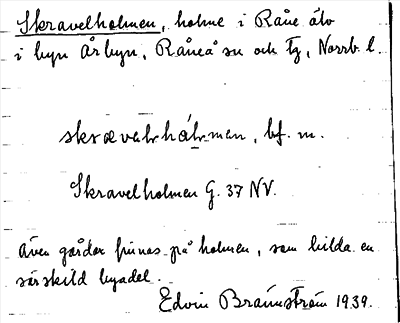 Skravelholmen, holme i Råne älv
i byn Årbyn, Råneå sn och tg, Norrb. l.
skrævelhålmen, bf. m.
Skravelholmen G. 37 NV.
Även gårdar finnas på holmen, som bilda en
särskild byadel.
Edvin Brännström 1939.